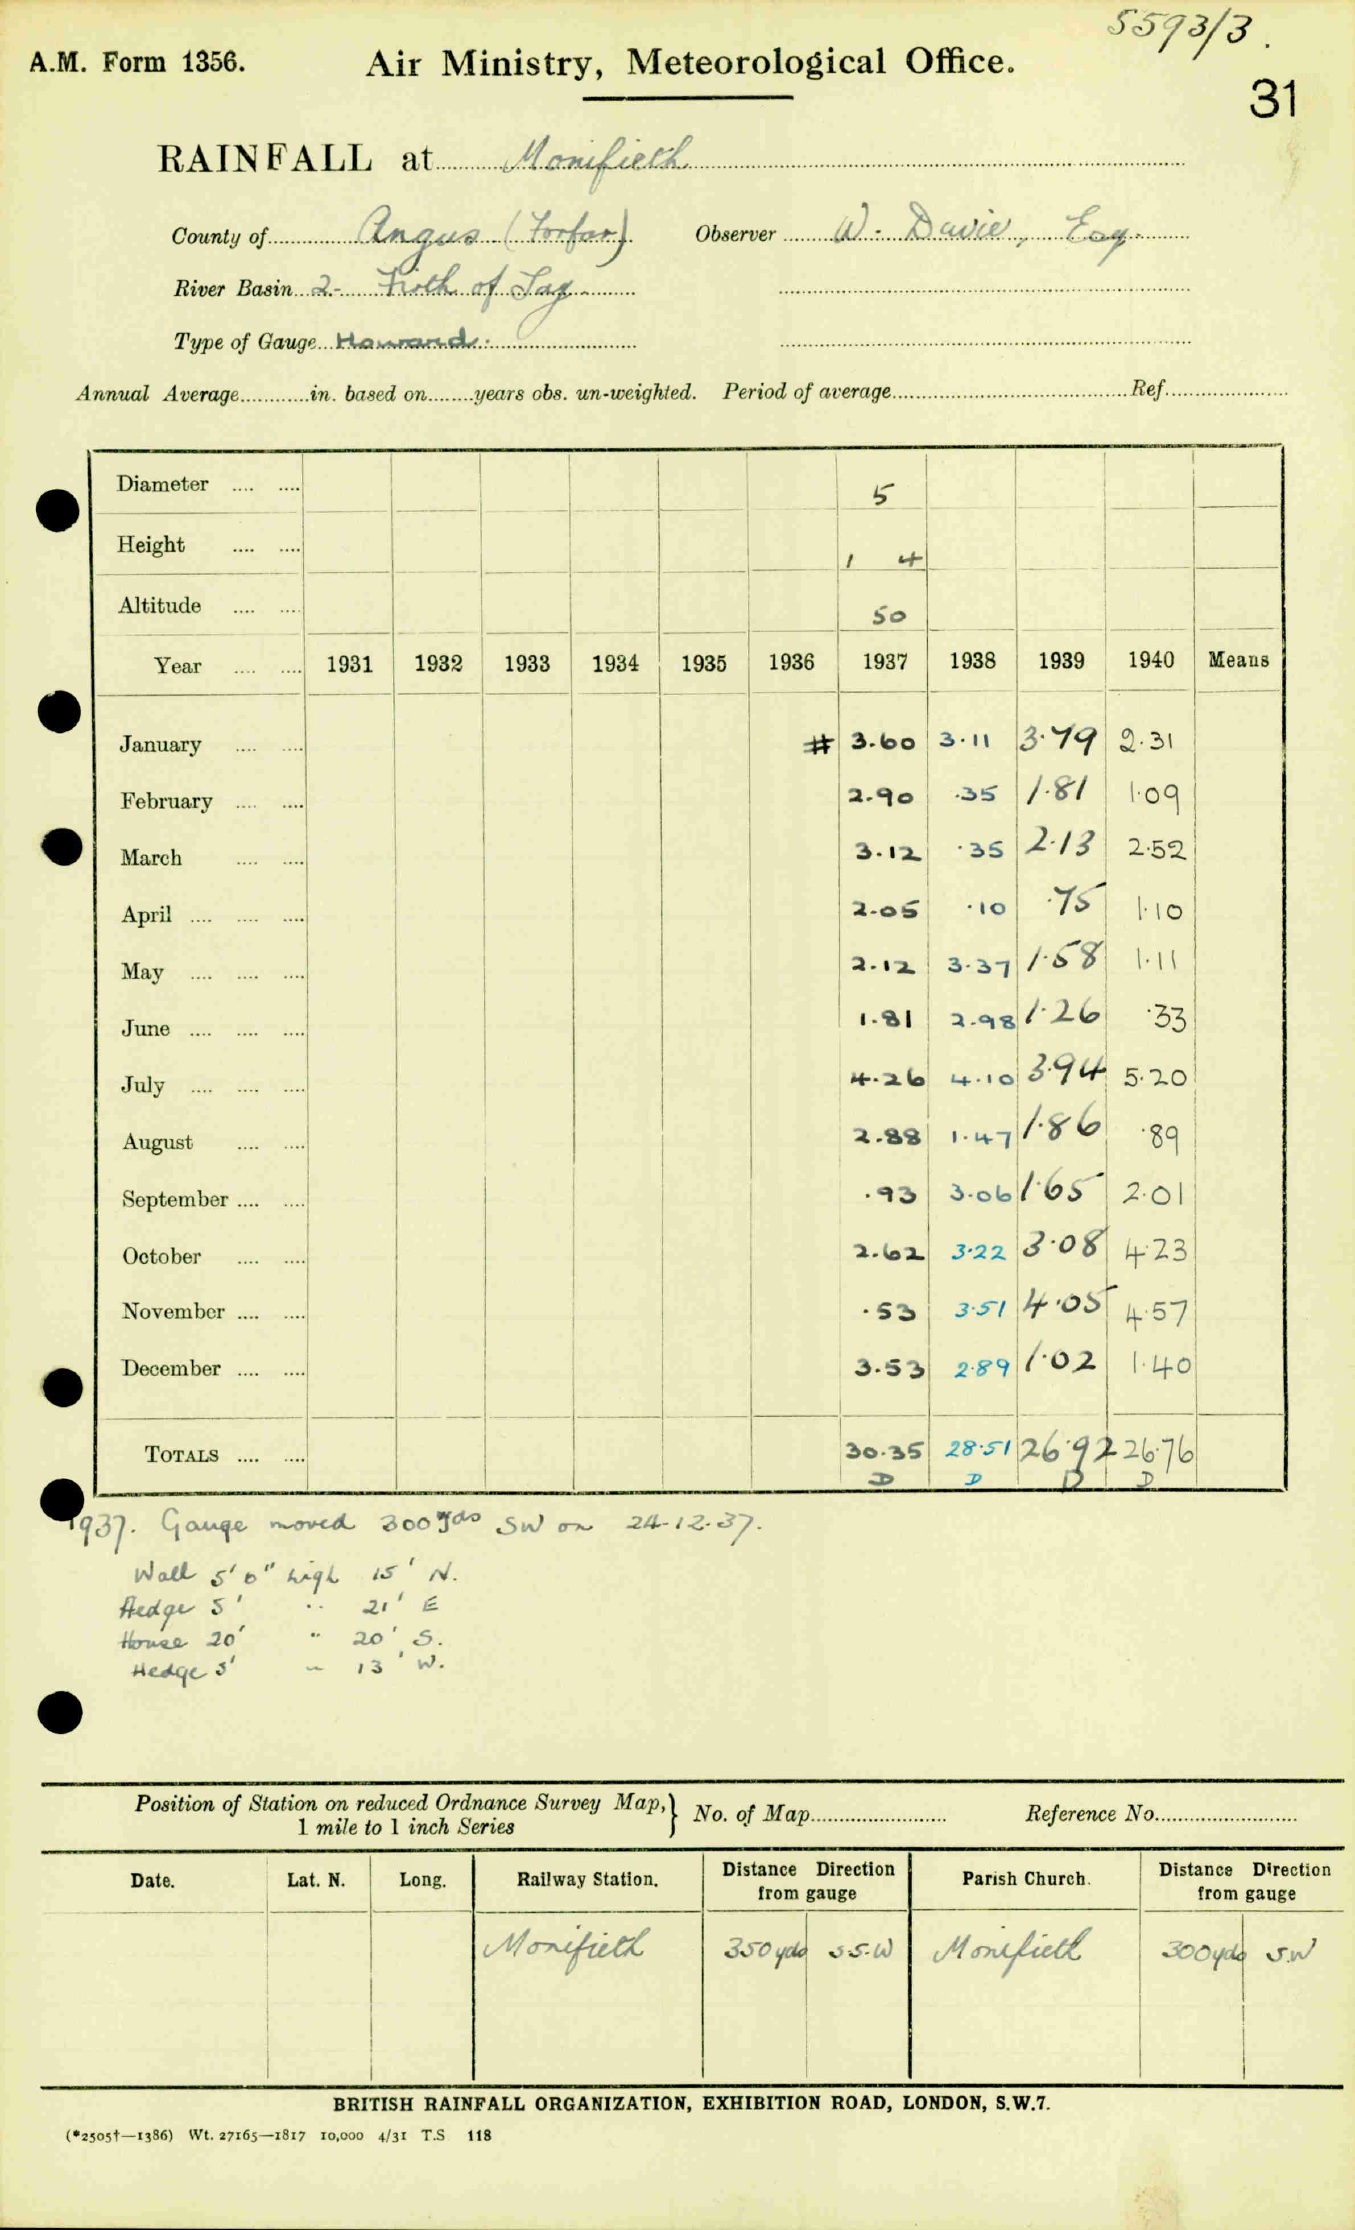 5593/3.
A.M. Form 1356. Air Ministry, Meteorological Office.
31
RAINFALL at Monifieth
County of Angus (Forfar) Observer W. Davie, Esq.
River Basin 2. Firth of Tay
Type of Gauge Howard.
Annual Average............in. based on........years obs. un-weighted. Period of average.......... Ref..........
Diameter .... .... 5
Height .... .... 1 4
Altitude .... .... 50
Year .... .... 1931 1932 1933 1934 1935 1936 1937 1938 1939 1940 Means
January .... .... # 3.60 3.11 3.79 2.31
February .... .... 2.90 .35 1.81 1.09
March .... .... 3.12 .35 2.13 2.52
April .... .... .... 2.05 .10 .75 1.10
May .... .... .... 2.12 3.37 1.58 1.11
June .... .... .... 1.81 2.98 1.26 .33
July .... .... .... 4.26 4.10 3.94 5.20
August .... .... 2.88 1.47 1.86 .89
September .... .... .93 3.06 1.65 2.01
October .... .... 2.62 3.22 3.08 4.23
November .... .... .53 3.51 4.05 4.57
December .... .... 3.53 2.89 1.02 1.40
TOTALS .... .... 30.35 28.51 26.92 26.76
D D D D
1937. Gauge moved 300 yds SW on 24.12.37.
Wall 5' 6" high 15' N.
Hedge 5' .. 21' E
House 20' " 20' S.
Hedge 5' " 13' W.
Position of Station on reduced Ordnance Survey Map, } No. of Map.......... Reference No..........
1 mile to 1 inch Series
Date. Lat. N. Long. Railway Station. Distance Direction from gauge Parish Church. Distance Direction from gauge
Monifieth 350 yds S S.W Monifieth 300 yds S.W
BRITISH RAINFALL ORGANIZATION, EXHIBITION ROAD, LONDON, S.W.7.
(*2505†—1386) Wt. 27165—1817 10,000 4/31 T.S 118